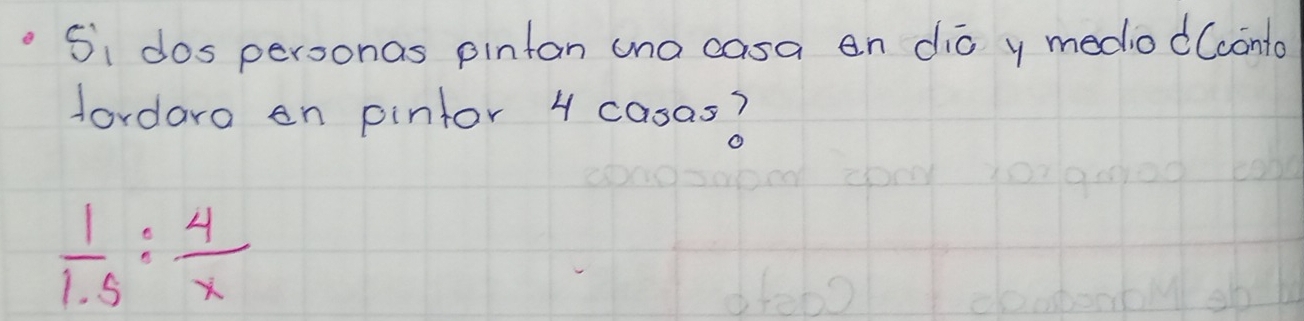 • Si dos personas pintan una casa en día y medio ¿Cuánto
tardara en pintar 4 casas?
1/1.5 : 4/x